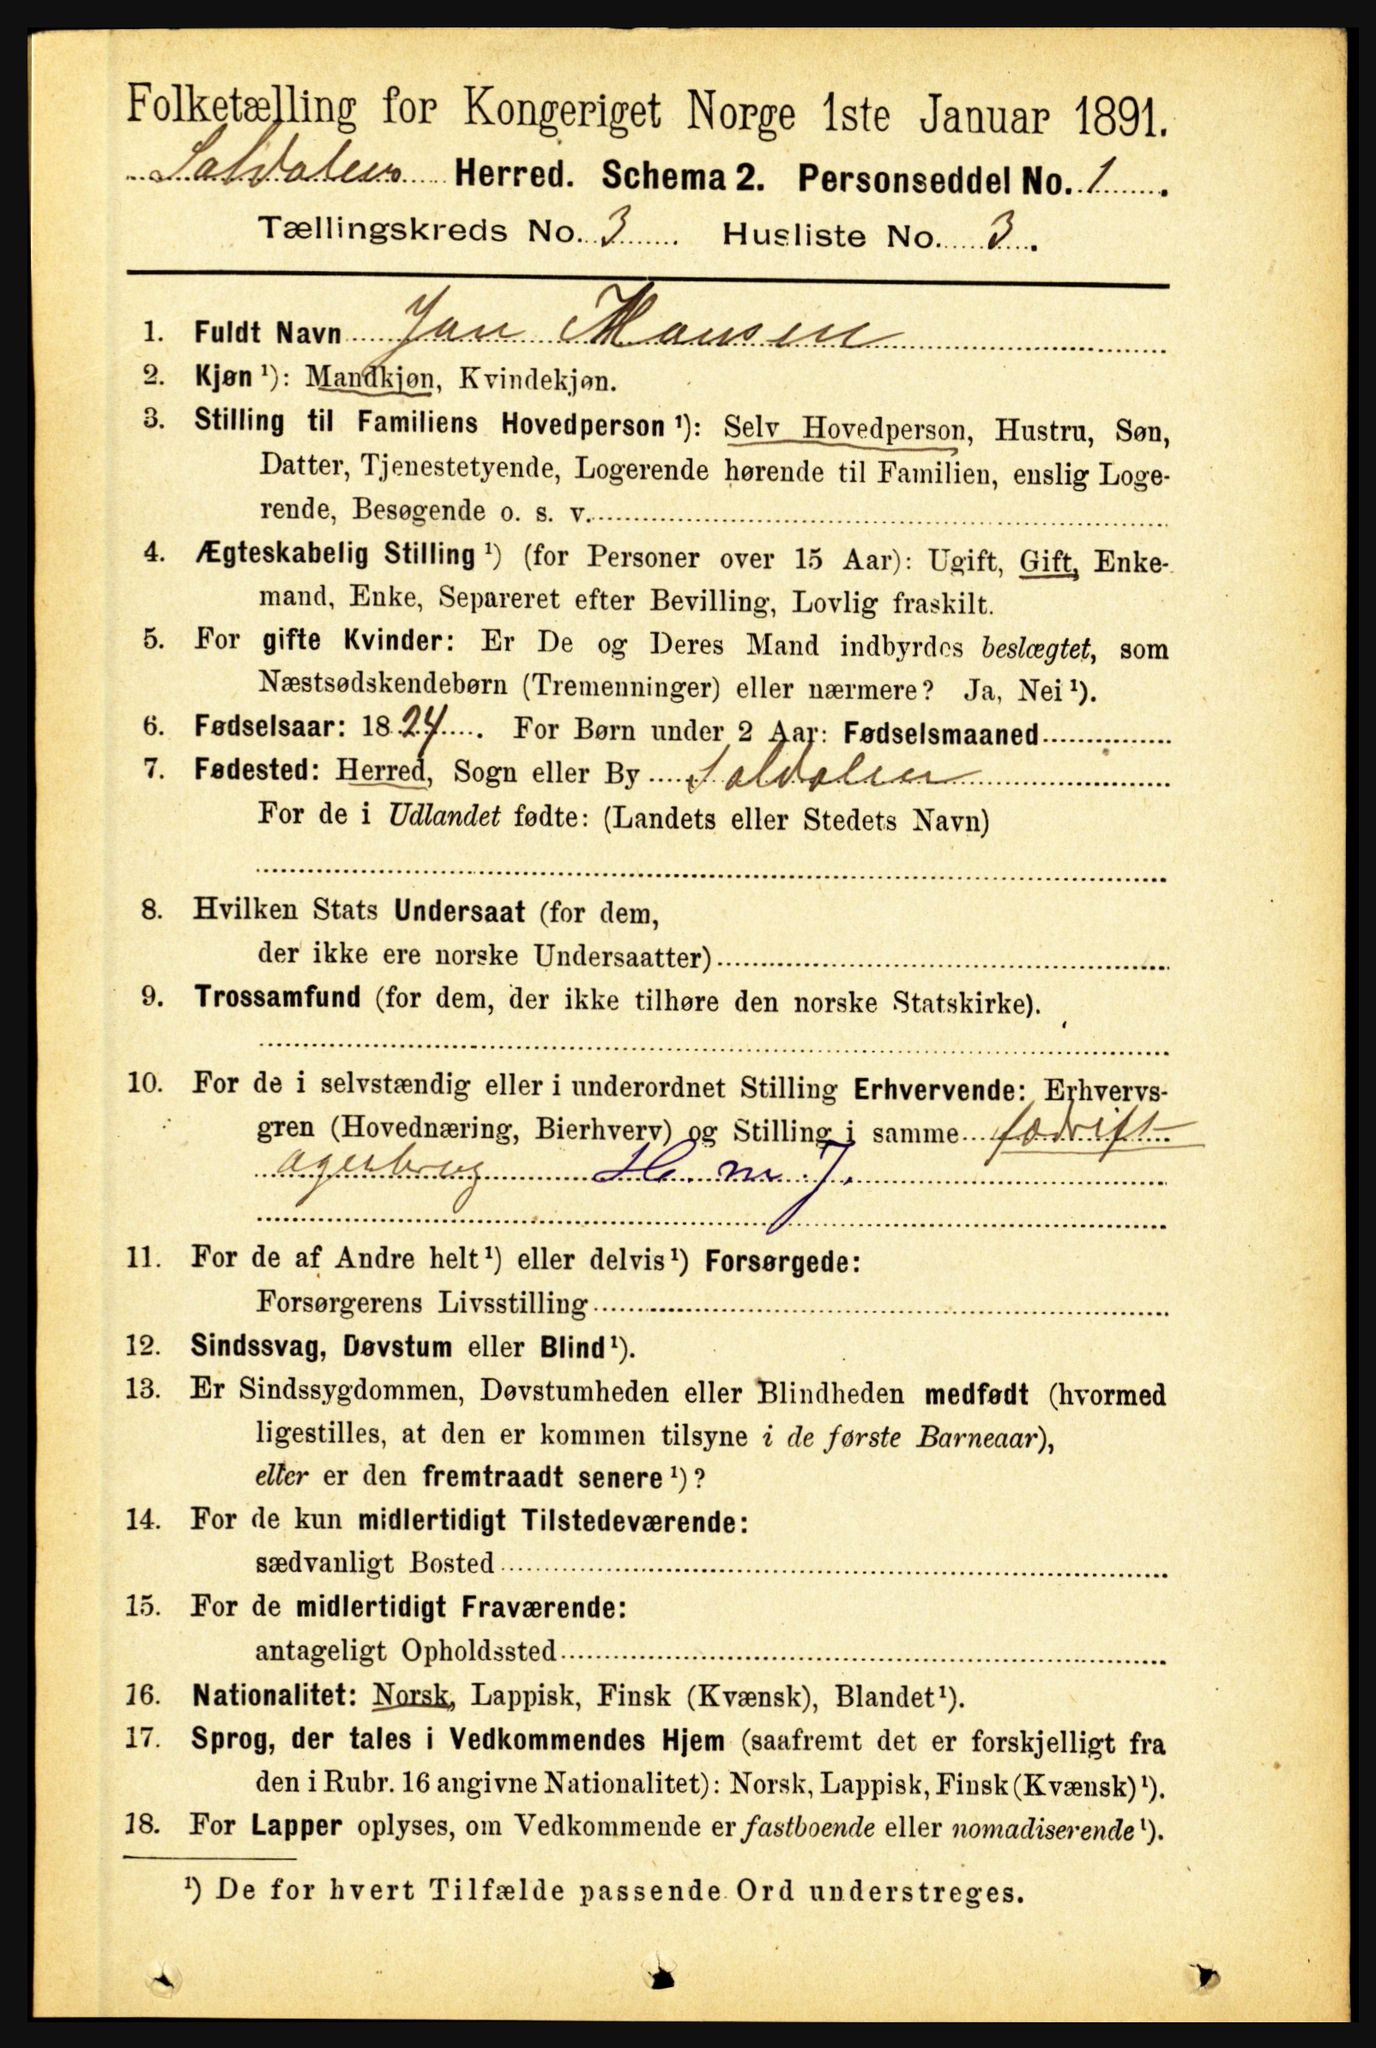 Folketælling for Kongeriget Norge 1ste Januar 1891.
Saldalen Herred. Schema 2. Personseddel No. 1.
Tællingskreds No. 3 Husliste No. 3.
1. Fuldt Navn Jan Monsen
2. Kjøn ¹): Mandkjøn, Kvindekjøn.
3. Stilling til Familiens Hovedperson ¹): Selv Hovedperson, Hustru, Søn,
Datter, Tjenestetyende, Logerende hørende til Familien, enslig Loge-
rende, Besøgende o. s. v.
4. Ægteskabelig Stilling ¹) (for Personer over 15 Aar): Ugift, Gift, Enke-
mand, Enke, Separeret efter Bevilling, Lovlig fraskilt.
5. For gifte Kvinder: Er De og Deres Mand indbyrdes beslægtet, som
Næstsødskendebørn (Tremenninger) eller nærmere? Ja, Nei ¹).
6. Fødselsaar: 1824. For Børn under 2 Aar: Fødselsmaaned
7. Fødested: Herred, Sogn eller By Saldalen
For de i Udlandet fødte: (Landets eller Stedets Navn)
8. Hvilken Stats Undersaat (for dem,
der ikke ere norske Undersaatter)
9. Trossamfund (for dem, der ikke tilhøre den norske Statskirke).
10. For de i selvstændig eller i underordnet Stilling Erhvervende: Erhvervs-
gren (Hovednæring, Bierhverv) og Stilling i samme fædrift
agerbrug
11. For de af Andre helt ¹) eller delvis ¹) Forsørgede:
Forsørgerens Livsstilling
12. Sindssvag, Døvstum eller Blind ¹).
13. Er Sindssygdommen, Døvstumheden eller Blindheden medfødt (hvormed
ligestilles, at den er kommen tilsyne i de første Barneaar),
eller er den fremtraadt senere ¹)?
14. For de kun midlertidigt Tilstedeværende:
sædvanligt Bosted
15. For de midlertidigt Fraværende:
antageligt Opholdssted
16. Nationalitet: Norsk, Lappisk, Finsk (Kvænsk), Blandet ¹).
17. Sprog, der tales i Vedkommendes Hjem (saafremt det er forskjelligt fra
den i Rubr. 16 angivne Nationalitet): Norsk, Lappisk, Finsk (Kvænsk) ¹).
18. For Lapper oplyses, om Vedkommende er fastboende eller nomadiserende ¹).
¹) De for hvert Tilfælde passende Ord understreges.